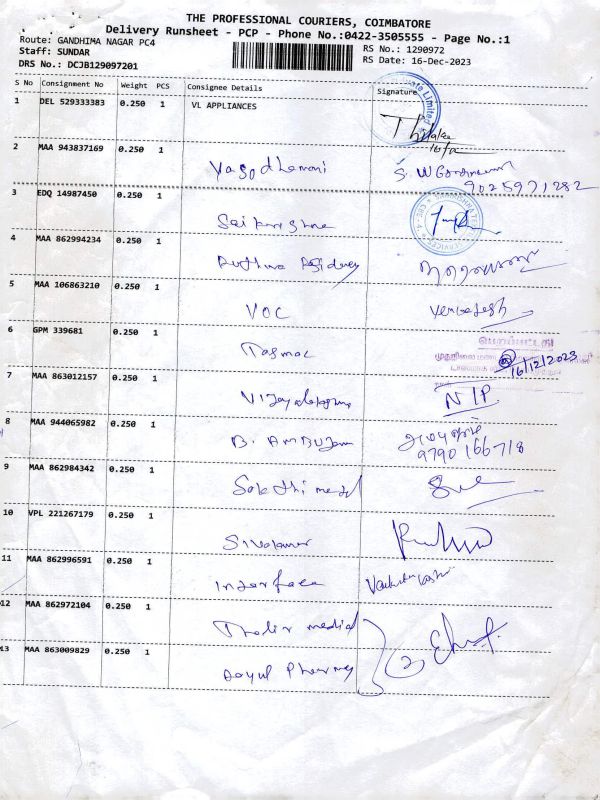 THE PROFESSIONAL COURIERS, COIMBATORE
Delivery Runsheet - PCP - Phone No.:0422-3505555 - Page No.:1
Route: GANDHIMA NAGAR PC4
RS No.: 1290972
Staff: SUNDAR
RS Date: 16-Dec-2023
DRS No.: DCJB129097201
S No Consignment No Weight PCS Consignee Details Signature
1 DEL 529333383 0.250 1 VL APPLIANCES
2 MAA 943837169 0.250 1 Yasodhamani S.
9025971282
3 EDQ 14987450 0.250 1
4 MAA 862994234 0.250 1
5 MAA 106863210 0.250 1 VOC Venkatesh
6 GPM 339681 0.250 1 Tasmac
16/12/2023
7 MAA 863012157 0.250 1 N/P
8 MAA 944065982 0.250 1 B. AMBUJam
9790166718
9 MAA 862984342 0.250 1 Sakthi medl
10 VPL 221267179 0.250 1 Sivakumar
11 MAA 862996591 0.250 1 Interface
12 MAA 862972104 0.250 1 medical
13 MAA 863009829 0.250 1 Pharmacy